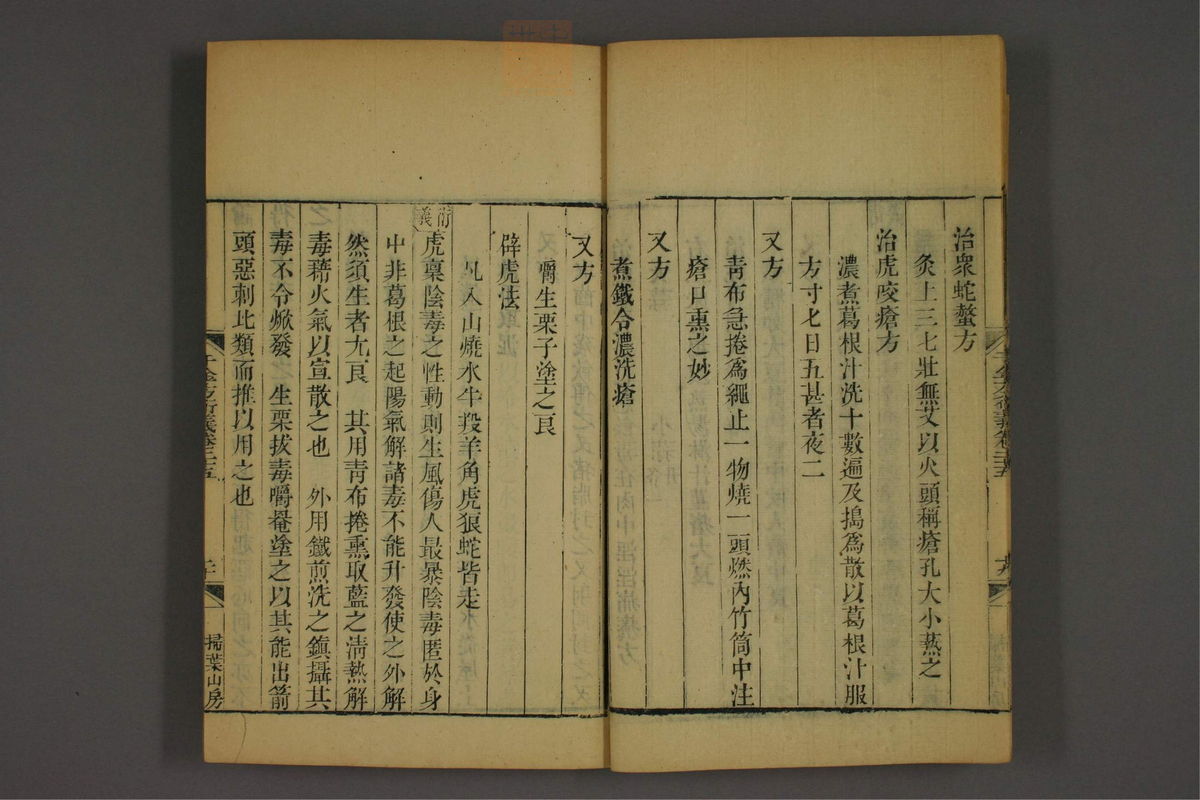 治衆蛇螫方
灸上三七壯無艾以火頭稱瘡孔大小爇之
治虎咬瘡方
濃煮葛根汁洗十數遍及搗爲散以葛根汁服
方寸匕日五甚者夜二
又方
靑布急捲爲繩止一物燒一頭燃內竹筒中注
瘡口熏之妙
又方
煮鐵令濃洗瘡
又方
嚼生栗子塗之良
辟虎法
凡入山燒水牛羖羊角虎狼蛇皆走
衍義
虎禀陰毒之性動則生風傷人最暴陰毒匿於身
中非葛根之起陽氣解諸毒不能升發使之外解
然須生者尤良　其用靑布捲熏取藍之淸熱解
毒藉火氣以宣散之也　外用鐵煎洗之鎭攝其
毒不令焮發　生栗拔毒嚼罨塗之以其能出箭
頭惡刺比類而推以用之也
千金方衍義卷二十五
掃葉山房